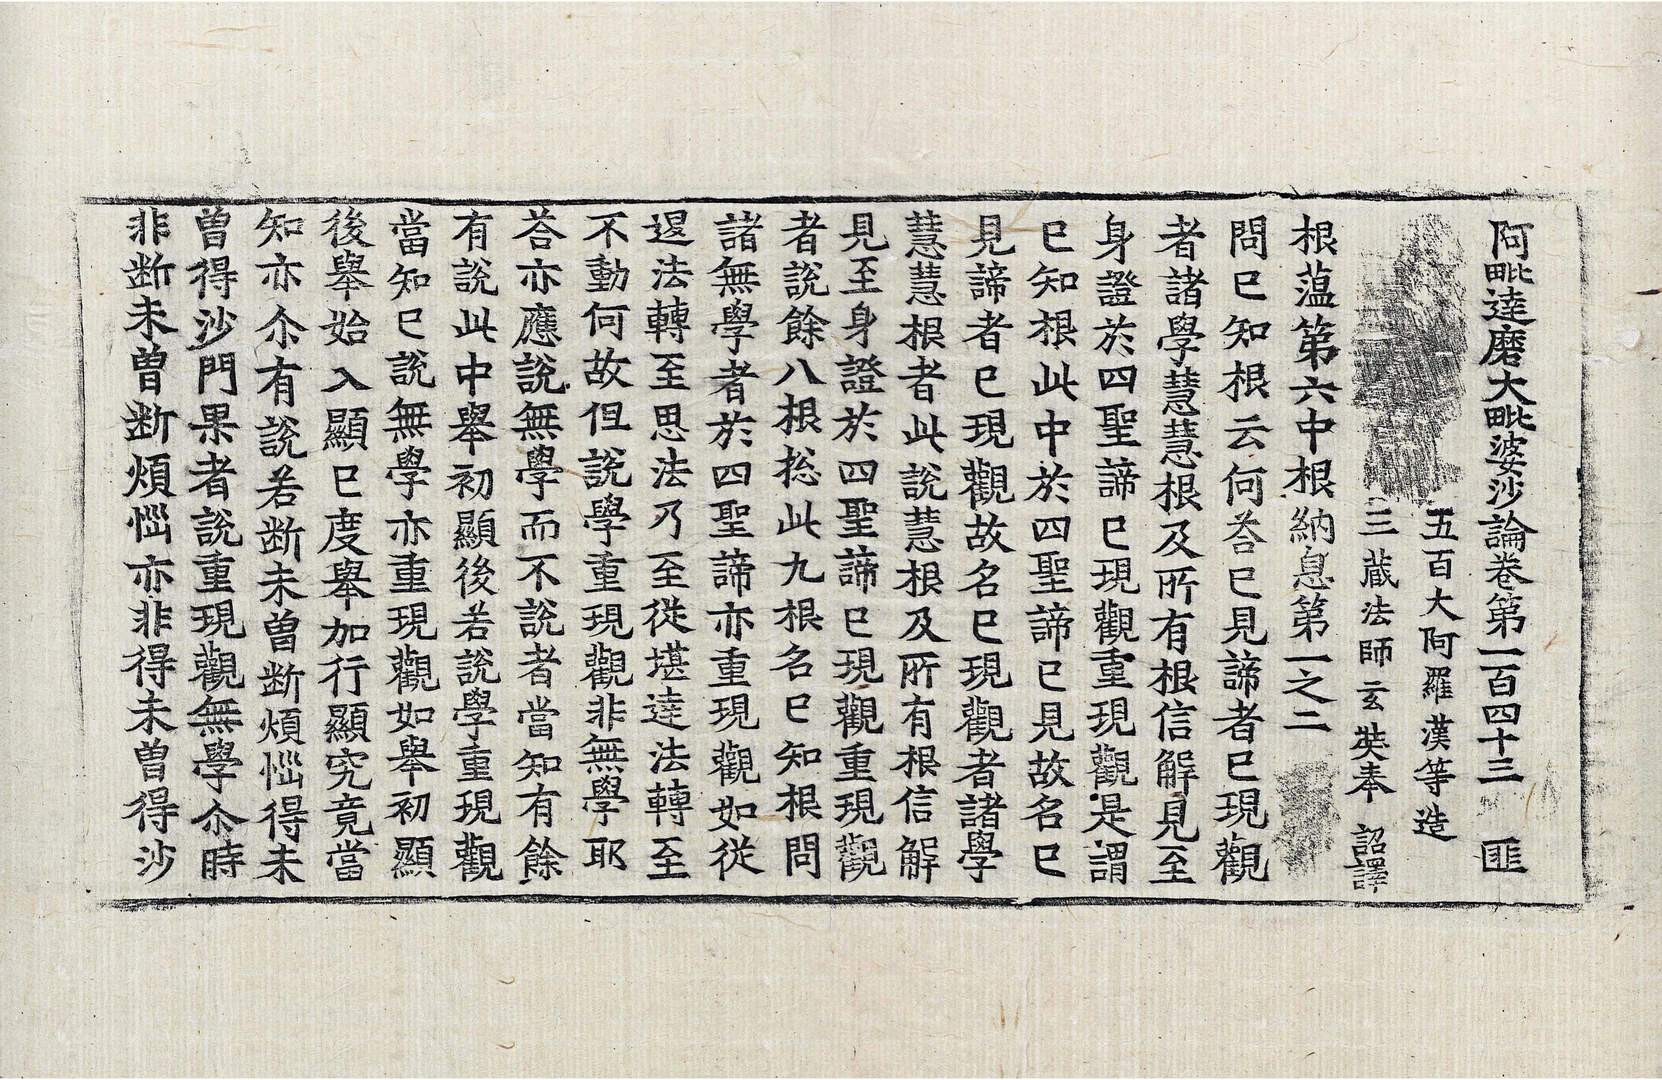 阿毗達磨大毗婆沙論卷第一百四十三　匪
五百大阿羅漢等造
三藏法師玄奘奉　詔譯
根薀第六中根納息第一之二
問已知根云何荅已見諦者已現觀
者諸學慧慧根及所有根信解見至
身證於四聖諦已現觀重現觀是謂
已知根此中於四聖諦已見故名已
見諦者已現觀故名已現觀者諸學
慧慧根者此說慧慧根及所有根信解
見至身證於四聖諦已現觀重現觀
者說餘八根捴此九根名已知根問
諸無學者於四聖諦亦重現觀如從
退法轉至思法乃至從堪達法轉至
不動何故但說學重現觀非無學耶
荅亦應說無學而不說者當知有餘
有說此中舉初顯後若說學重現觀
當知已說無學亦重現觀如舉初顯
後舉始入顯已度舉加行顯究竟當
知亦尒有說若断未曽断煩惱得未
曽得沙門果者說重現觀無學尒時
非断未曽断煩惱亦非得未曽得沙